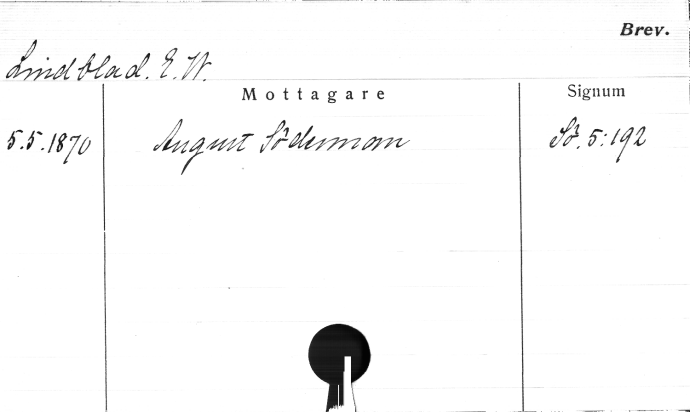 Brev.
Lindblad. E. W.
Mottagare Signum
5.5.1870 August Söderman Sö. 5:192